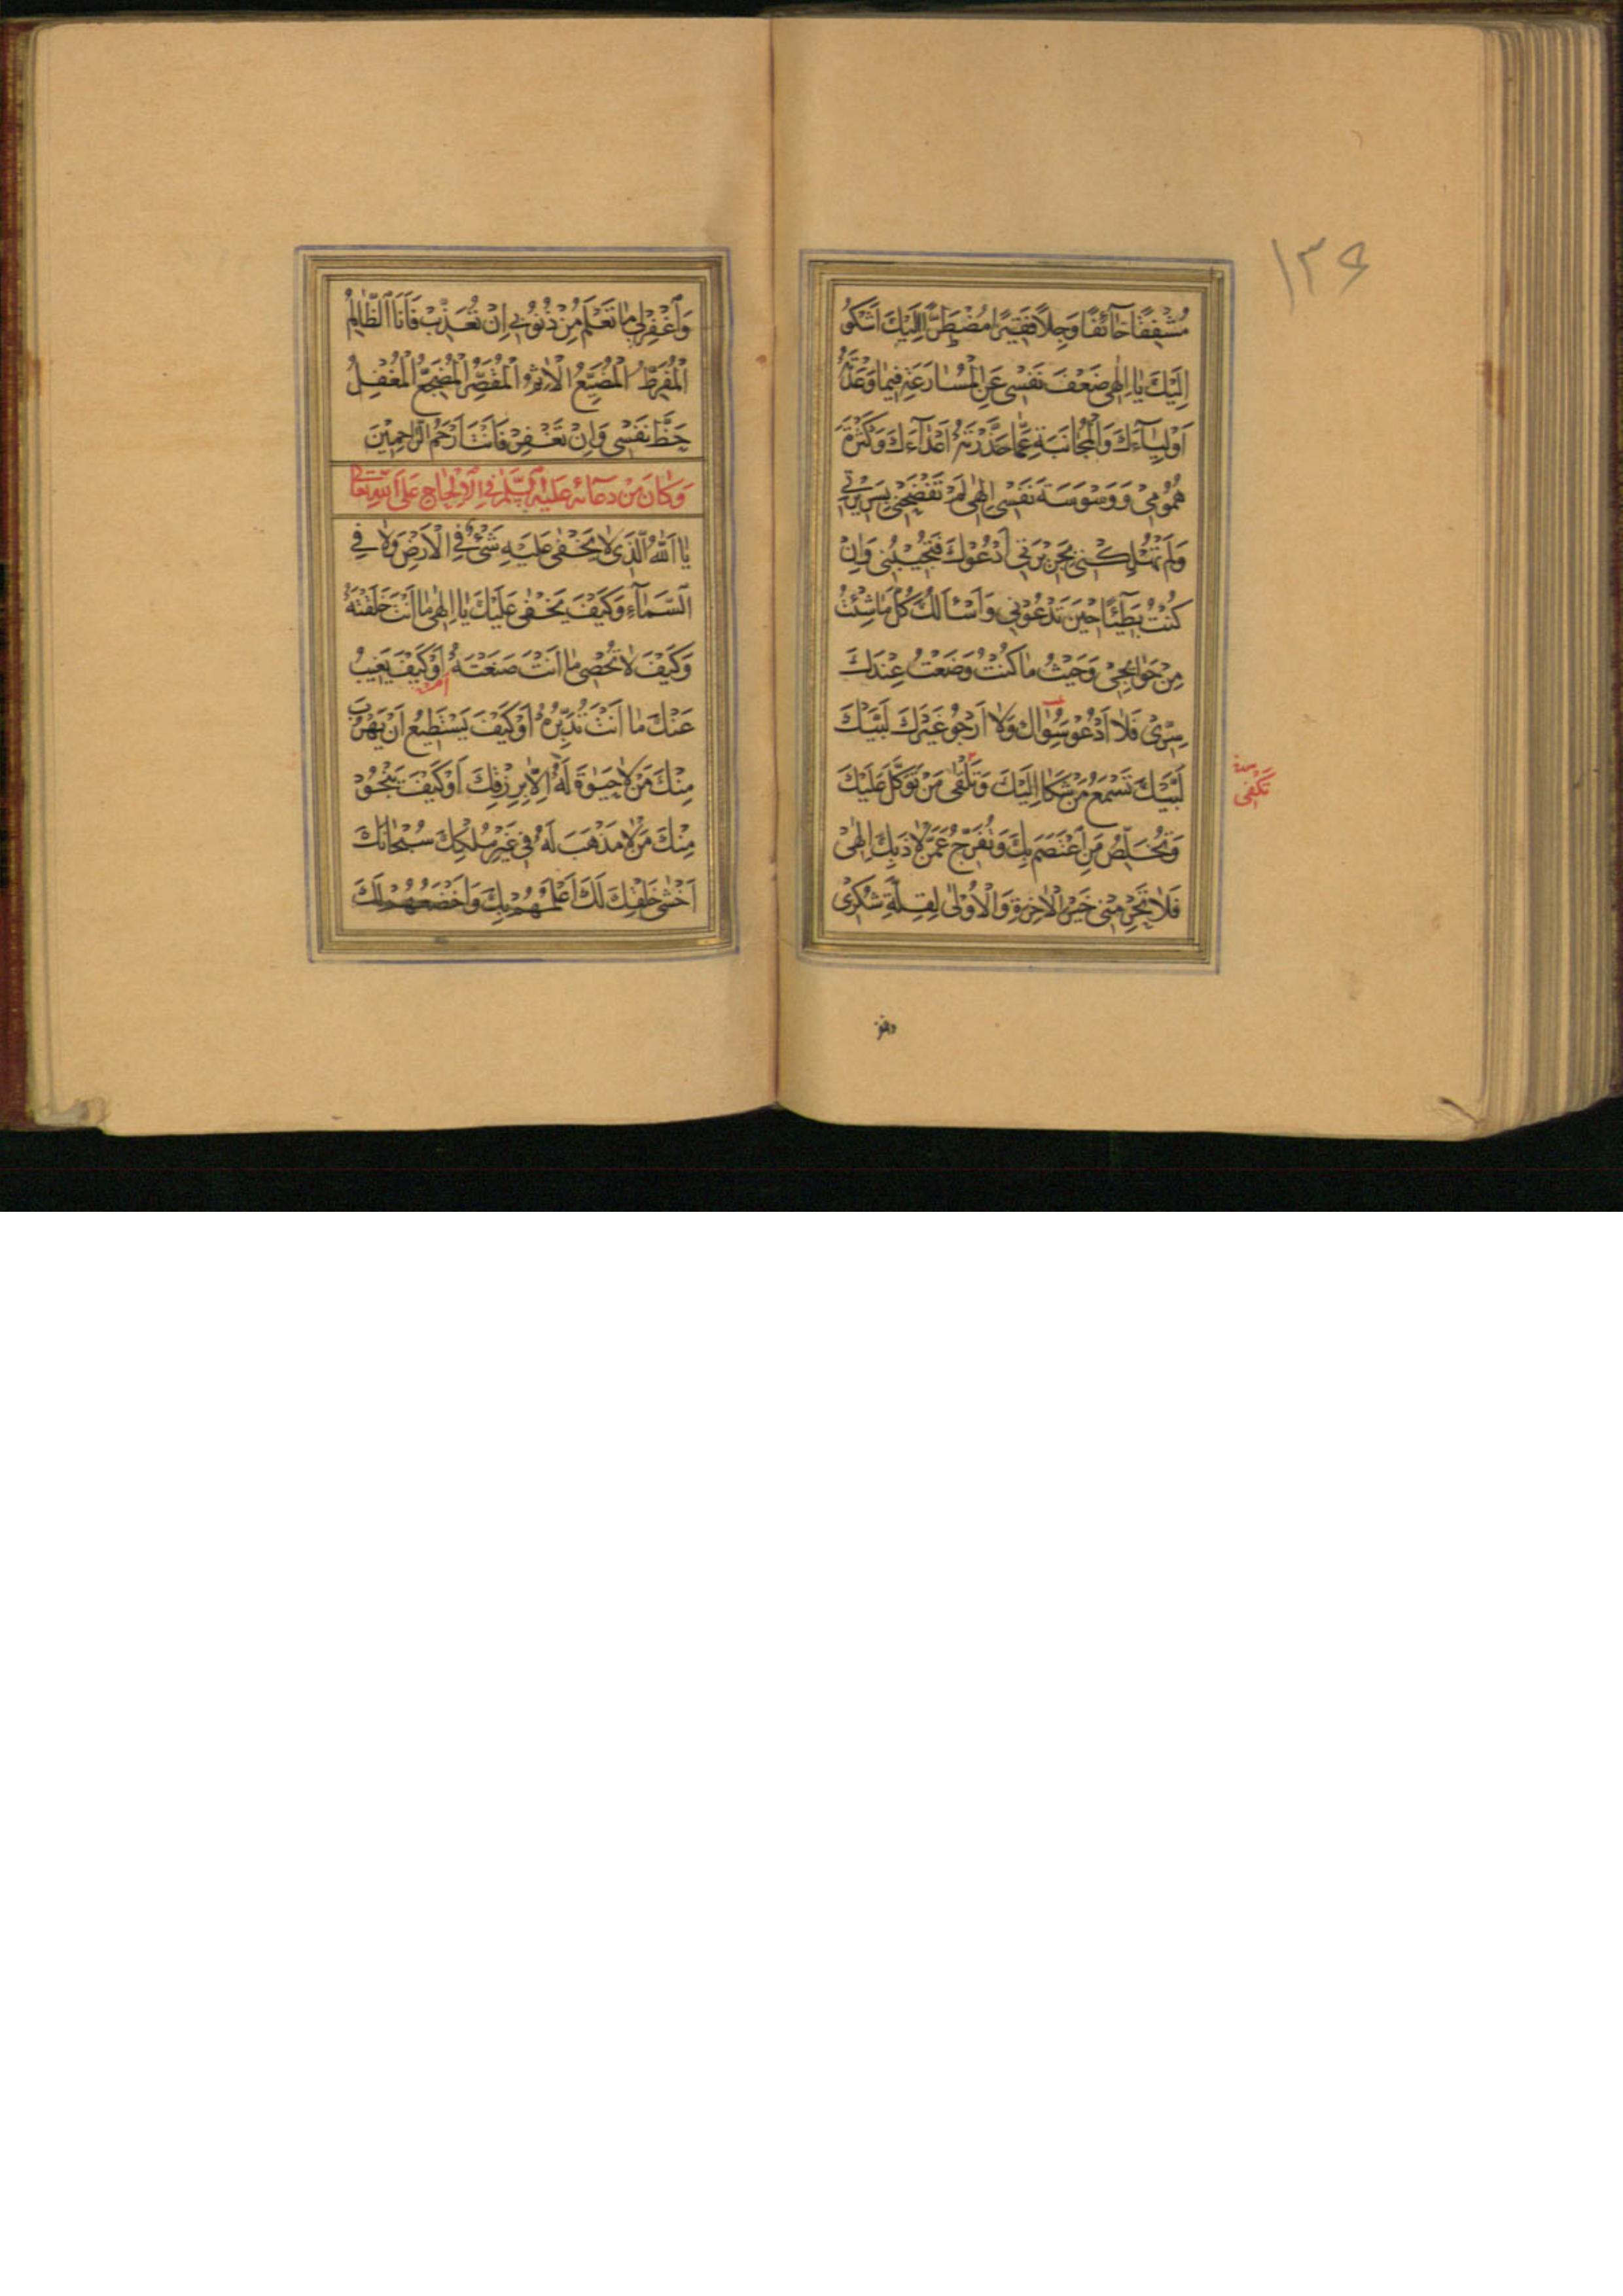 ١٣٦
مُشْفِقًا خَآئِفًا وَجِلًا فَقِيرًا مُضْطَرًّا اِلَيْكَ اَشْكُو
اِلَيْكَ يَا اِلٰهِى ضَعْفَ نَفْسِى عَنِ الْمُسَارَعَةِ فِيمَا وَعَدْتَهُ
اَوْلِيَآءَكَ وَالْمُجَانَبَةِ عَمَّا حَذَّرْتَهُ اَعْدَآءَكَ وَكَثْرَةَ
هُمُومِى وَ وَسْوَسَةَ نَفْسِى اِلٰهِى لَمْ تَفْضَحْنِى بِسَرِيرَتِى
وَلَمْ تُهْلِكْنِى بِجَرِيرَتِى اَدْعُوْكَ فَتُجِيْبُنِى وَاِنْ
كُنْتُ بَطِيْئًا حِيْنَ تَدْعُوْنِى وَاَسْئَالُكَ كُلَّ مَا شِئْتُ
مِنْ حَوَائِجِى وَحَيْثُ مَا كُنْتُ وَضَعْتُ عِنْدَكَ
سِرِّى فَلَا اَدْعُو سِوَاكَ وَلَا اَرْجُو غَيْرَكَ لَبَّيْكَ
لَبَّيْكَ تَسْمَعُ مَنْ شَكَا اِلَيْكَ وَتَلْقٰى مَنْ تَوَكَّلَ عَلَيْكَ
تَكْفِى
وَتُخَلِّصُ مَنِ اعْتَصَمَ بِكَ وَتُفَرِّجُ عَمَّنْ لَاذَ بِكَ اِلٰهِى
فَلَا تَحْرِمْنِى خَيْرَ الْاٰخِرَةِ وَالْاُوْلٰى لِقِلَّةِ شُكْرِى
وَاغْفِرْ لِى مَا تَعْلَمُ مِنْ ذُنُوْبِى اِنْ تُعَذِّبْ فَاَنَا الظَّالِمُ
الْمُفَرِّطُ الْمُضَيِّعُ الْاٰثِمُ الْمُقَصِّرُ الْمُضَجِّعُ الْمُغْفِلُ
حَظَّ نَفْسِى وَاِنْ تَغْفِرْ فَاَنْتَ اَرْحَمُ الرَّاحِمِيْنَ
وَكَانَ مِنْ دُعَائِهِ عَلَيْهِ السَّلَمُ فِى الْاِلْحَاحِ عَلَى اللهِ تَعَالٰى
يَا اَللهُ الَّذِى لَا يَخْفٰى عَلَيْهِ شَىْءٌ فِى الْاَرْضِ وَلَا فِى
السَّمَآءِ وَكَيْفَ يَخْفٰى عَلَيْكَ يَا اِلٰهِى مَا اَنْتَ خَلَقْتَهُ
وَكَيْفَ لَا تُحْصِى مَا اَنْتَ صَنَعْتَهُ اَوْ كَيْفَ يَغِيبُ
عَنْكَ مَا اَنْتَ تُدَبِّرُهُ اَوْ كَيْفَ يَسْتَطِيعُ اَنْ يَهْرُبَ
مِنْكَ مَنْ لَا حَيٰوةَ لَهُ اِلَّا بِرِزْقِكَ اَوْ كَيْفَ يَنْجُوْ
مِنْكَ مَنْ لَا مَذْهَبَ لَهُ فِى غَيْرِ مُلْكِكَ سُبْحَانَكَ
اَخْشٰى خَلْقِكَ لَكَ اَعْلَمُهُمْ بِكَ وَاَخْضَعُهُمْ لَكَ